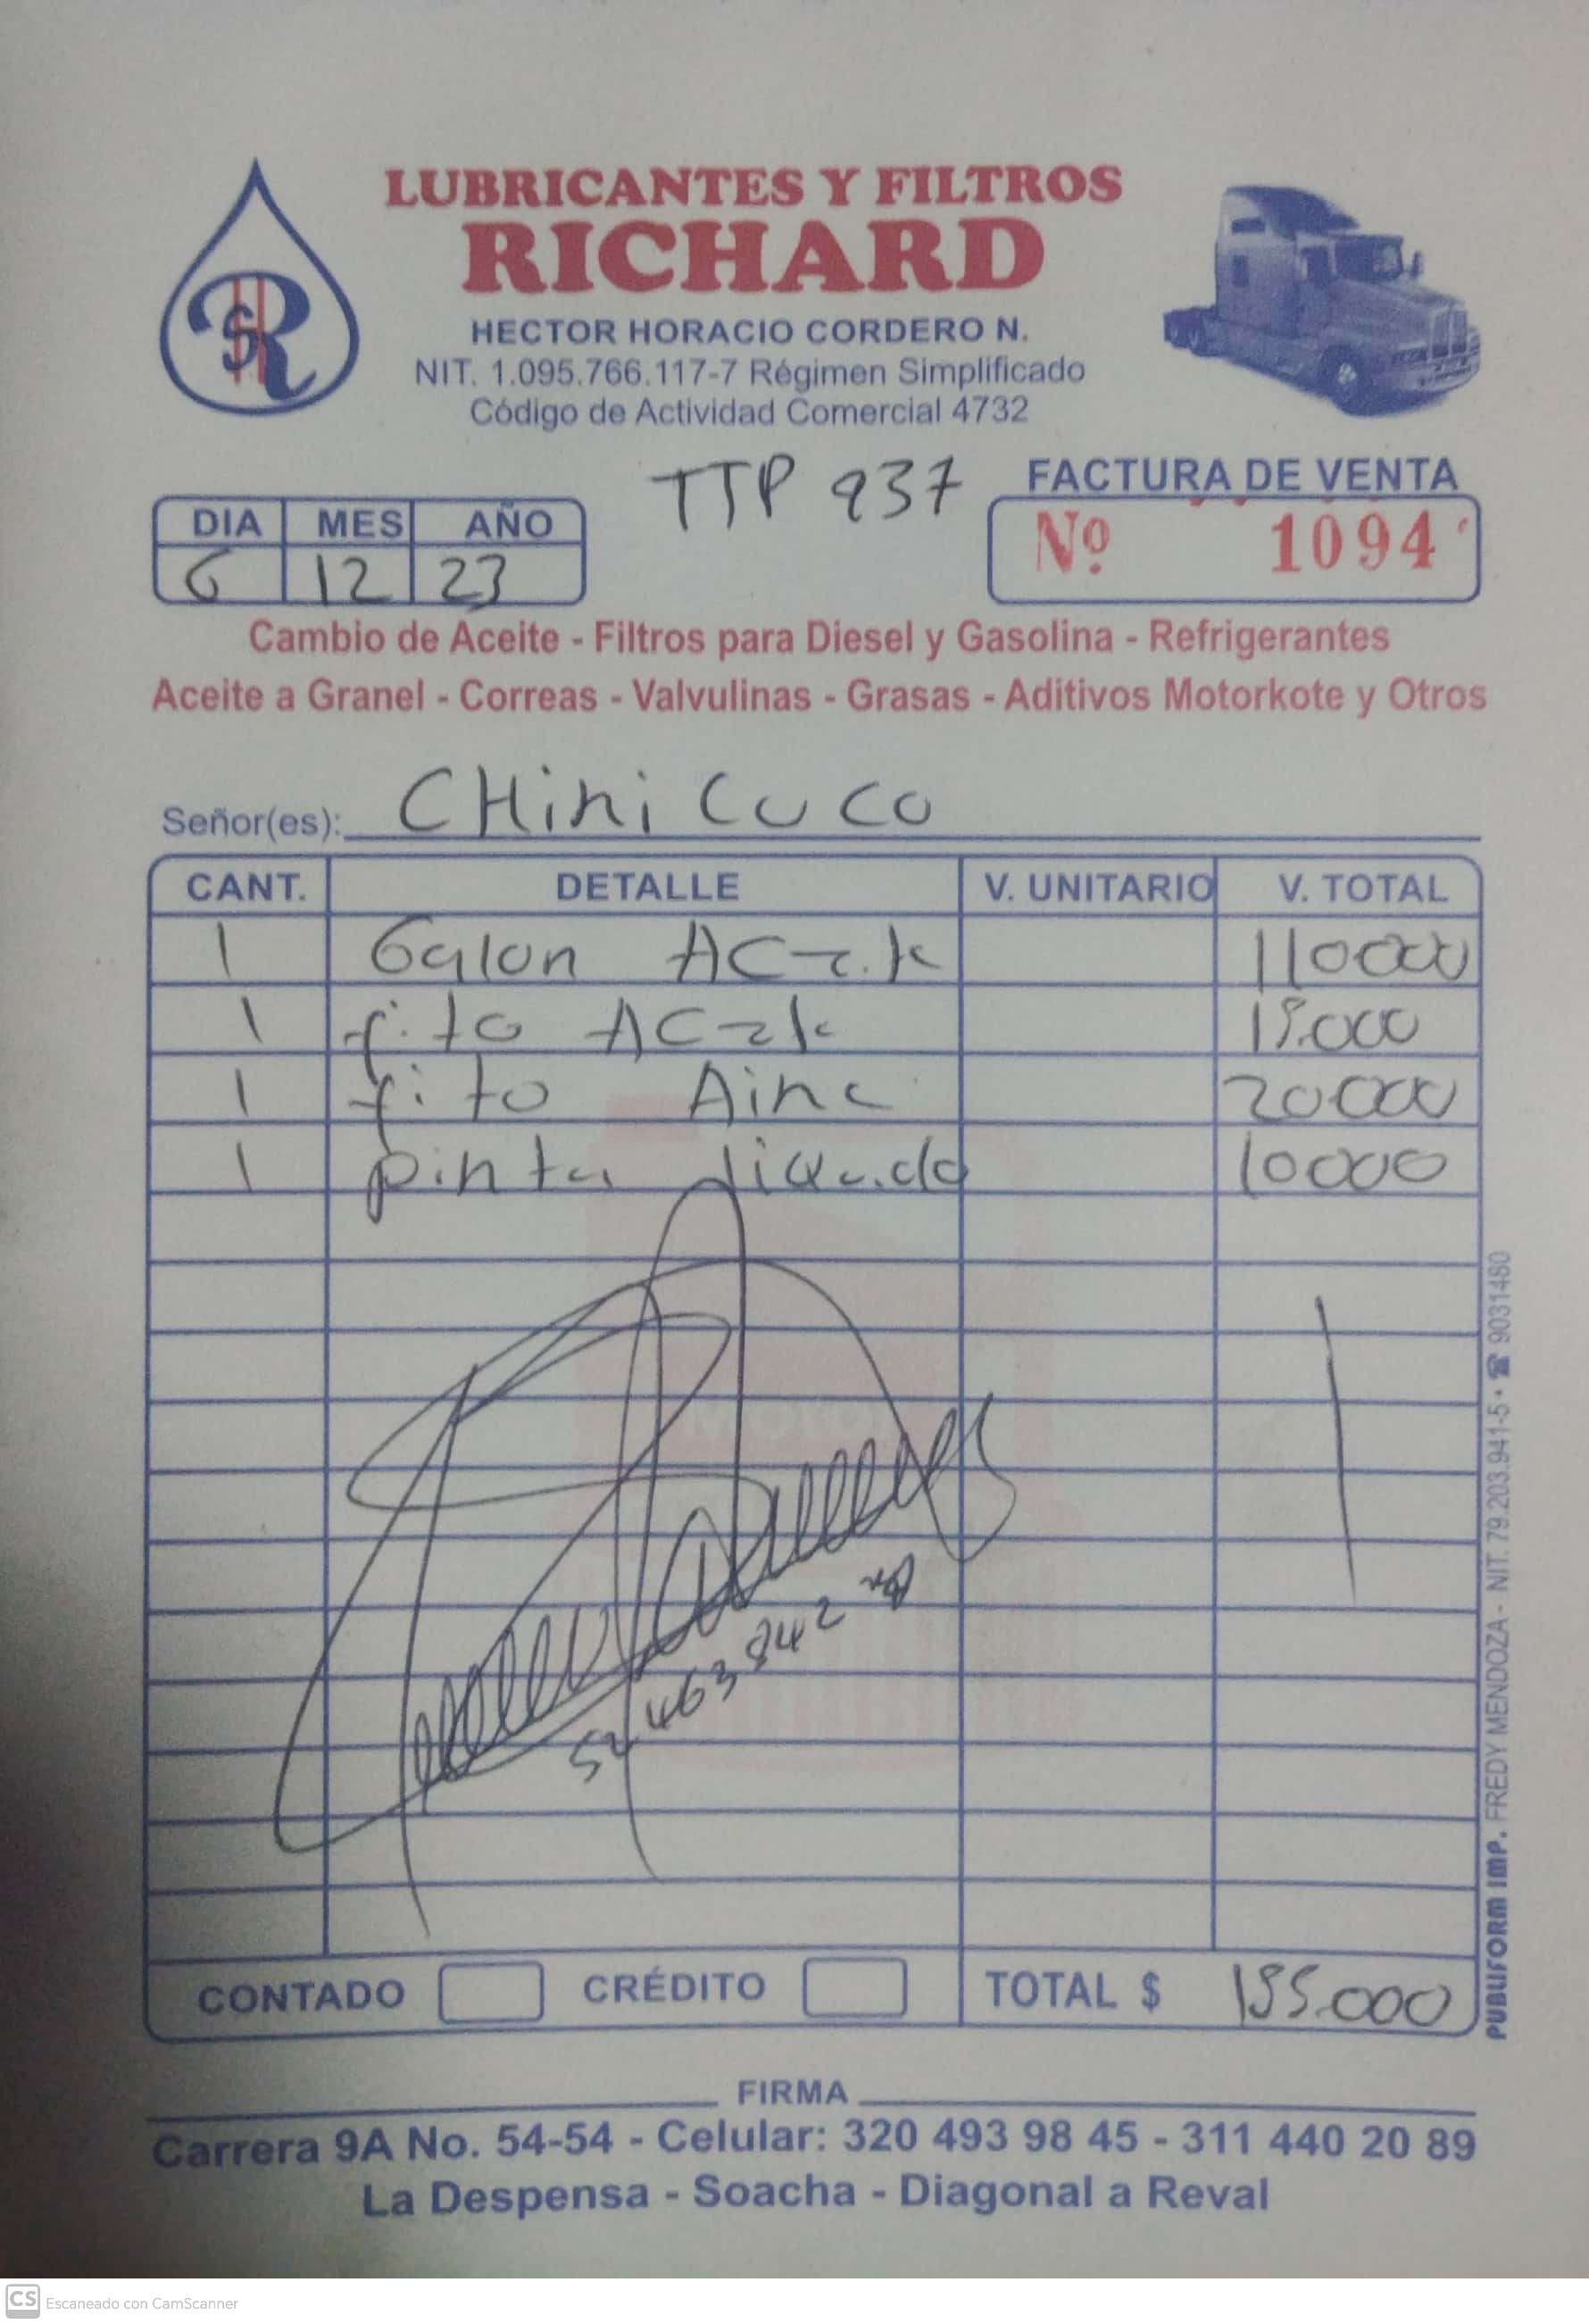 LUBRICANTES Y FILTROS
RICHARD
HECTOR HORACIO CORDERO N.
NIT. 1.095.766.117-7 Régimen Simplificado
Código de Actividad Comercial 4732
TTP 937
FACTURA DE VENTA
Nº 1094
DIA MES AÑO
6 12 23
Cambio de Aceite - Filtros para Diesel y Gasolina - Refrigerantes
Aceite a Granel - Correas - Valvulinas - Grasas - Aditivos Motorkote y Otros
Señor(es): CHini CUCO
CANT. DETALLE V. UNITARIO V. TOTAL
1 Galon 110000
1 15.000
1 20000
1 pinta liquido 10000
52463842
CONTADO CRÉDITO TOTAL $ 155.000
FIRMA
Carrera 9A No. 54-54 - Celular: 320 493 98 45 - 311 440 20 89
La Despensa - Soacha - Diagonal a Reval
PUBLIFORM IMP. FREDY MENDOZA - NIT. 79.203.941-5 • ☎ 9031480
CS Escaneado con CamScanner